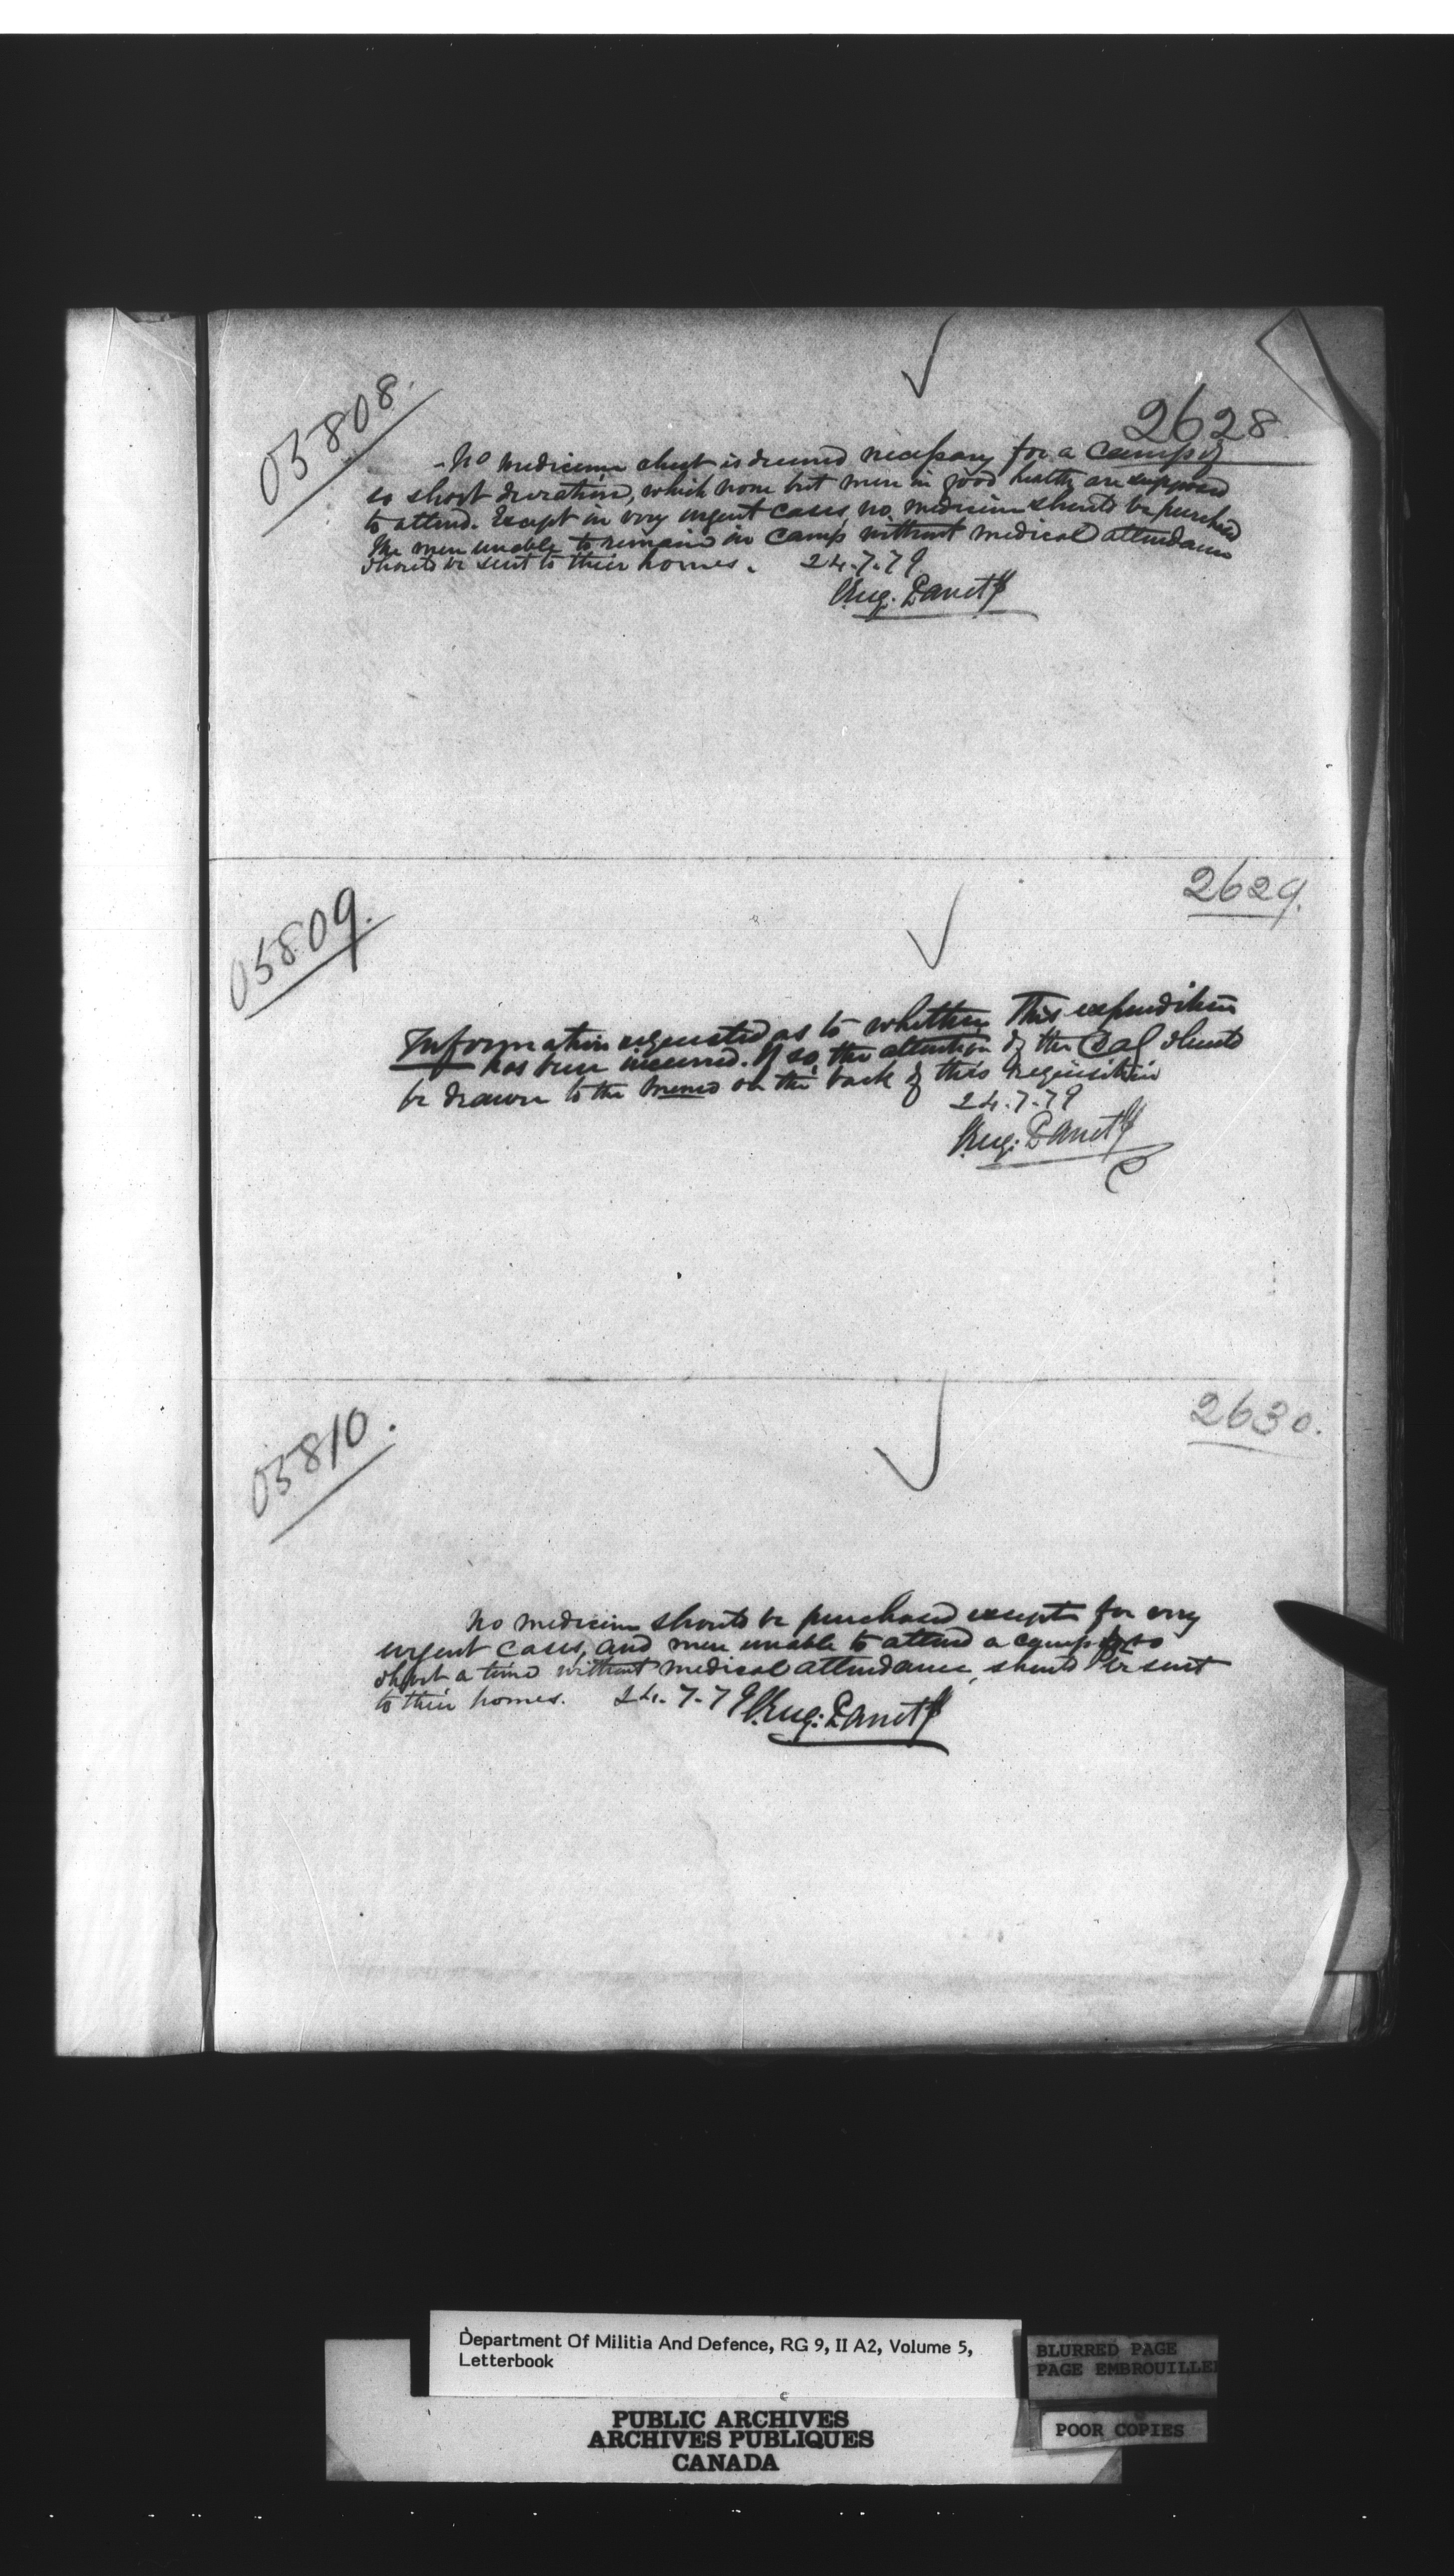 05808.
2628
No medicine chest is deemed necessary for a camp of
so short duration, which none but men in good health are supposed
to attend. Except in very urgent cases, no medicine should be purchased
The men unable to remain in camp without medical attendance
should be sent to their homes. 24.7.79
Eug. Panet
05809.
2629.
Information requested as to whether this expenditure
has been incurred. If so, the attention of the DAG should
be drawn to the memo on the back of this requisition
24.7.79
Eug. Panet
05810.
2630.
No medicine should be purchased except for very
urgent cases, and men unable to attend a camp for so
short a time without medical attendance, should be sent
to their homes. 24.7.79 Eug. Panet
Department Of Militia And Defence, RG 9, II A2, Volume 5,
Letterbook
BLURRED PAGE
PAGE EMBROUILLEE
POOR COPIES
PUBLIC ARCHIVES
ARCHIVES PUBLIQUES
CANADA